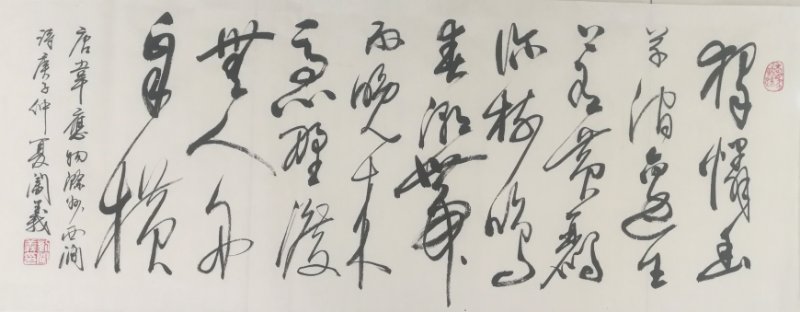 獨憐幽
草澗邊生
上有黄鸝
深樹鳴
春潮帶
雨晚來
急野渡
無人舟
自橫
唐韋應物滁州西澗
詩庚子仲夏義